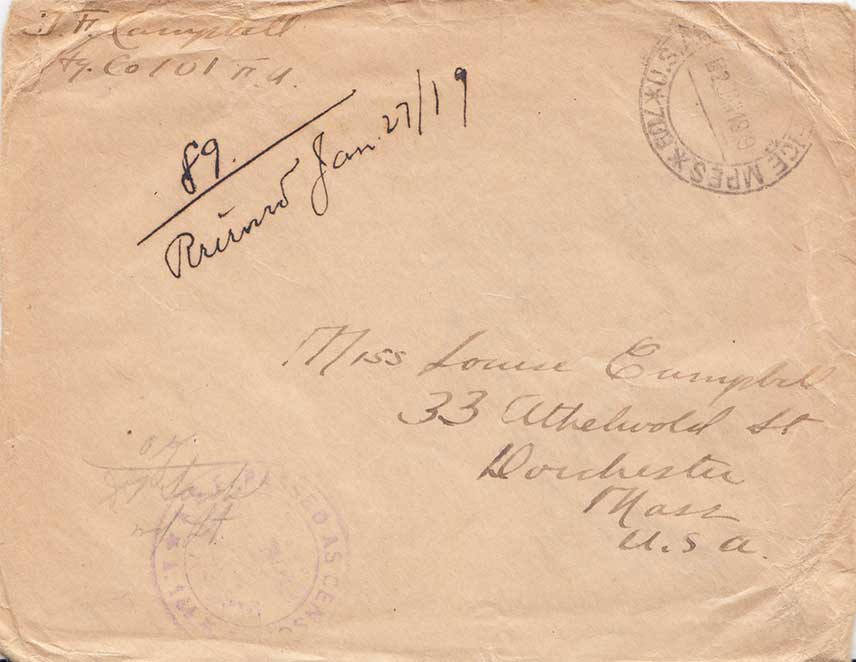 F. Campbell
Hq. Co 101
89.
Received Jan. 27/19
U.S. MPES * 702 *
Miss Louise Campbell
33 Athelwold St
Dorchester
Mass
U.S.A.
OK
PASSED AS CENSORED
A.